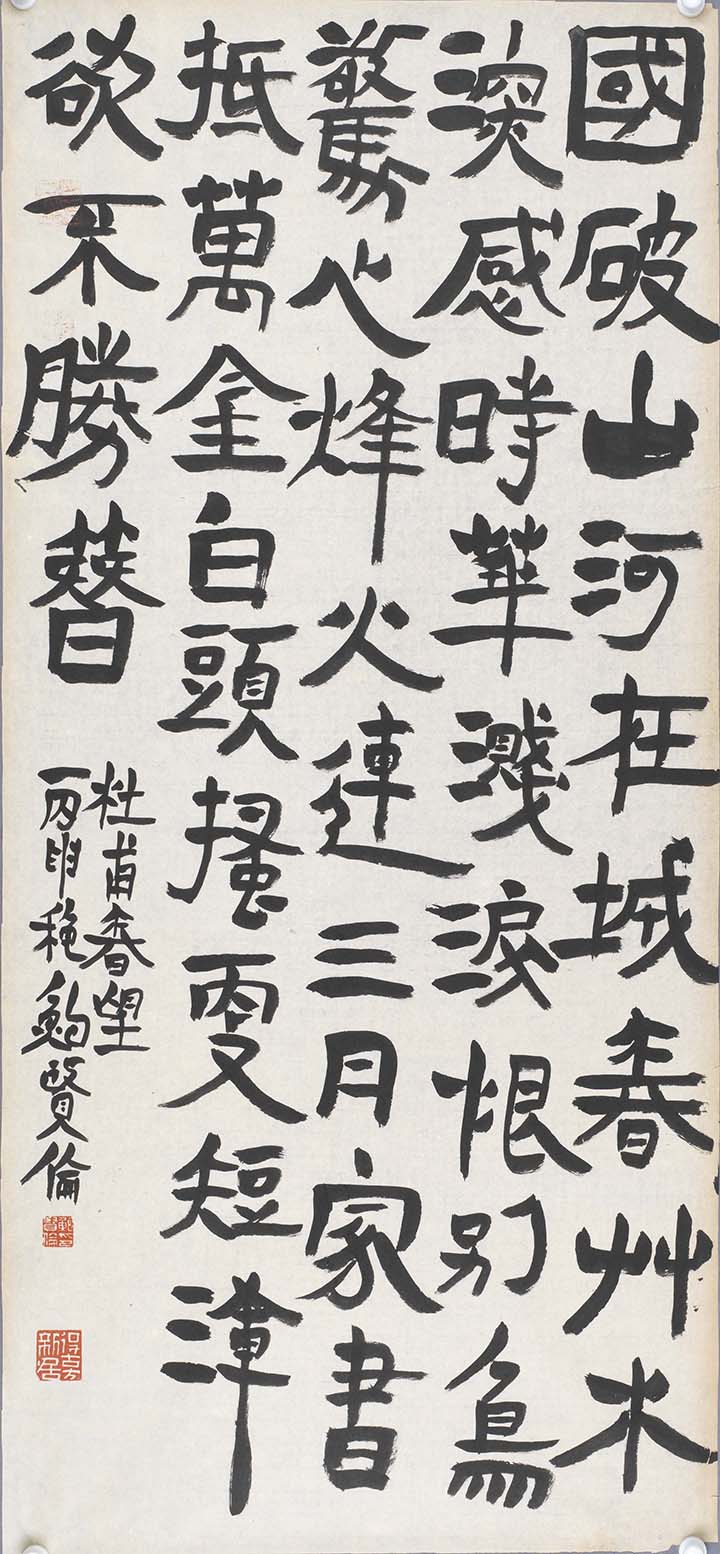 國破山河在城春艸木
深感時華濺淚恨別鳥
驚心烽火連三月家書
抵萬金白頭搔更短渾
欲不勝簪
杜甫春望
丙申穐賢倫